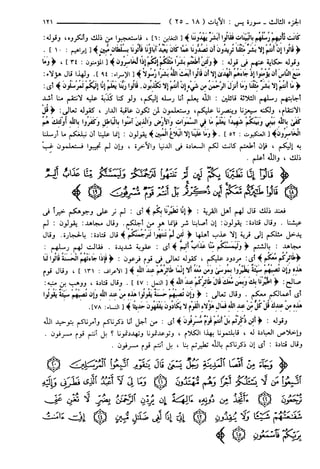 الجزء الثالث - سورة يس : الآيات ( ١٨ - ٢٥ ) ١٢١
تأتيهم رسلهم بالبينات فقالوا أبشر يهدوننا ﴾ [ التغابن : ٦ ] ، فاستعجبوا من ذلك وأنكروه، وقوله:
﴿ قالوا إن أنتم إلا بشر مثلنا تريدون أن تصدونا عما كان يعبد آباؤنا فأتونا بسلطان مبين ﴾ [ إبراهيم : ١٠ ] .
وقوله حكاية عنهم في قوله : ﴿ ولئن أطعتم بشرا مثلكم إنكم إذا لخاسرون ﴾ [ المؤمنون : ٣٤ ] ، ﴿ وما
منع الناس أن يؤمنوا إذ جاءهم الهدى إلا أن قالوا أبعث الله بشرا رسولا ﴾ [ الإسراء: ٩٤ ]. ولهذا قال هؤلاء:
﴿ ما أنتم إلا بشر مثلنا وما أنزل الرحمن من شيء إن أنتم إلا تكذبون. قالوا ربنا يعلم إنا إليكم لمرسلون ﴾ أي:
أجابتهم رسلهم الثلاثة قائلين : الله يعلم أنا رسله إليكم، ولو كنا كذبة عليه لانتقم منا أشد
الانتقام، ولكنه سيعزنا وينصرنا عليكم، وستعلمون لمن تكون عاقبة الدار، كقوله تعالى: ﴿ قل
كفى بالله بيني وبينكم شهيدا يعلم ما في السموات والأرض والذين آمنوا بالباطل وكفروا بالله أولئك هم
الخاسرون ﴾ [ العنكبوت : ٥٢ ] . ﴿ وما علينا إلا البلاغ المبين ﴾ يقولون : إنما علينا أن نبلغكم ما أرسلنا
به إليكم ، فإن أطعتم كانت لكم السعادة في الدنيا والآخرة ، وإن لم تجيبوا فستعلمون غِبَّ
ذلك ، والله أعلم .
فعند ذلك قال لهم أهل القرية : ﴿ إنا تطيرنا بكم ﴾ أي : لم نر على وجوهكم خيراً في
عيشنا . وقال قتادة: يقولون: إن أصابنا شر فإنما هو من أجلكم. وقال مجاهد: يقولون : لم
يدخل مثلكم إلى قرية إلا عذب أهلها ﴿ لئن لم تنتهوا لنرجمنكم ﴾ قال قتادة: بالحجارة. وقال
مجاهد : بالشتم ﴿ وليمسنكم منا عذاب أليم ﴾ أي : عقوبة شديدة . فقالت لهم رسلهم :
﴿ طائركم معكم ﴾ أي: مردود عليكم ، كقوله تعالى في قوم فرعون : ﴿ فإذا جاءتهم الحسنة قالوا لنا
هذه وإن تصبهم سيئة يطيروا بموسى ومن معه ألا إنما طائرهم عند الله ﴾ [ الأعراف: ١٣١ ] ، وقال قوم
صالح: ﴿ اطيرنا بك وبمن معك قال طائركم عند الله ﴾ [ النمل : ٤٧ ] . وقال قتادة ، ووهب بن منبه:
أي أعمالكم معكم . وقال تعالى : ﴿ وإن تصبهم حسنة يقولوا هذه من عند الله وإن تصبهم سيئة يقولوا
هذه من عندك قل كل من عند الله فمال هؤلاء القوم لا يكادون يفقهون حديثا ﴾ [ النساء: ٧٨].
وقوله : ﴿ أئن ذكرتم بل أنتم قوم مسرفون ﴾ أي : من أجل أنا ذكرناكم وأمرناكم بتوحيد الله
وإخلاص العبادة له ، قابلتمونا بهذا الكلام ، وتوعدتمونا وتهددتمونا ؟ بل أنتم قوم مسرفون .
وقال قتادة : أي إن ذكرناكم بالله تطيرتم بنا ، بل أنتم قوم مسرفون .
وجاء من أقصا المدينة رجل يسعى قال يا قوم اتبعوا
المرسلين ﴿٢٠﴾ اتبعوا من لا يسألكم أجرا وهم مهتدون ﴿٢١﴾ وما لي لا أعبد الذي فطرني
وإليه ترجعون ﴿٢٢﴾ أأتخذ من دونه آلهة إن يردن الرحمن بضر لا تغن عني
شفاعتهم شيئا ولا ينقذون ﴿٢٣﴾ إني إذا لفي ضلال مبين ﴿٢٤﴾ إني آمنت
بربكم فاسمعون ﴿٢٥﴾